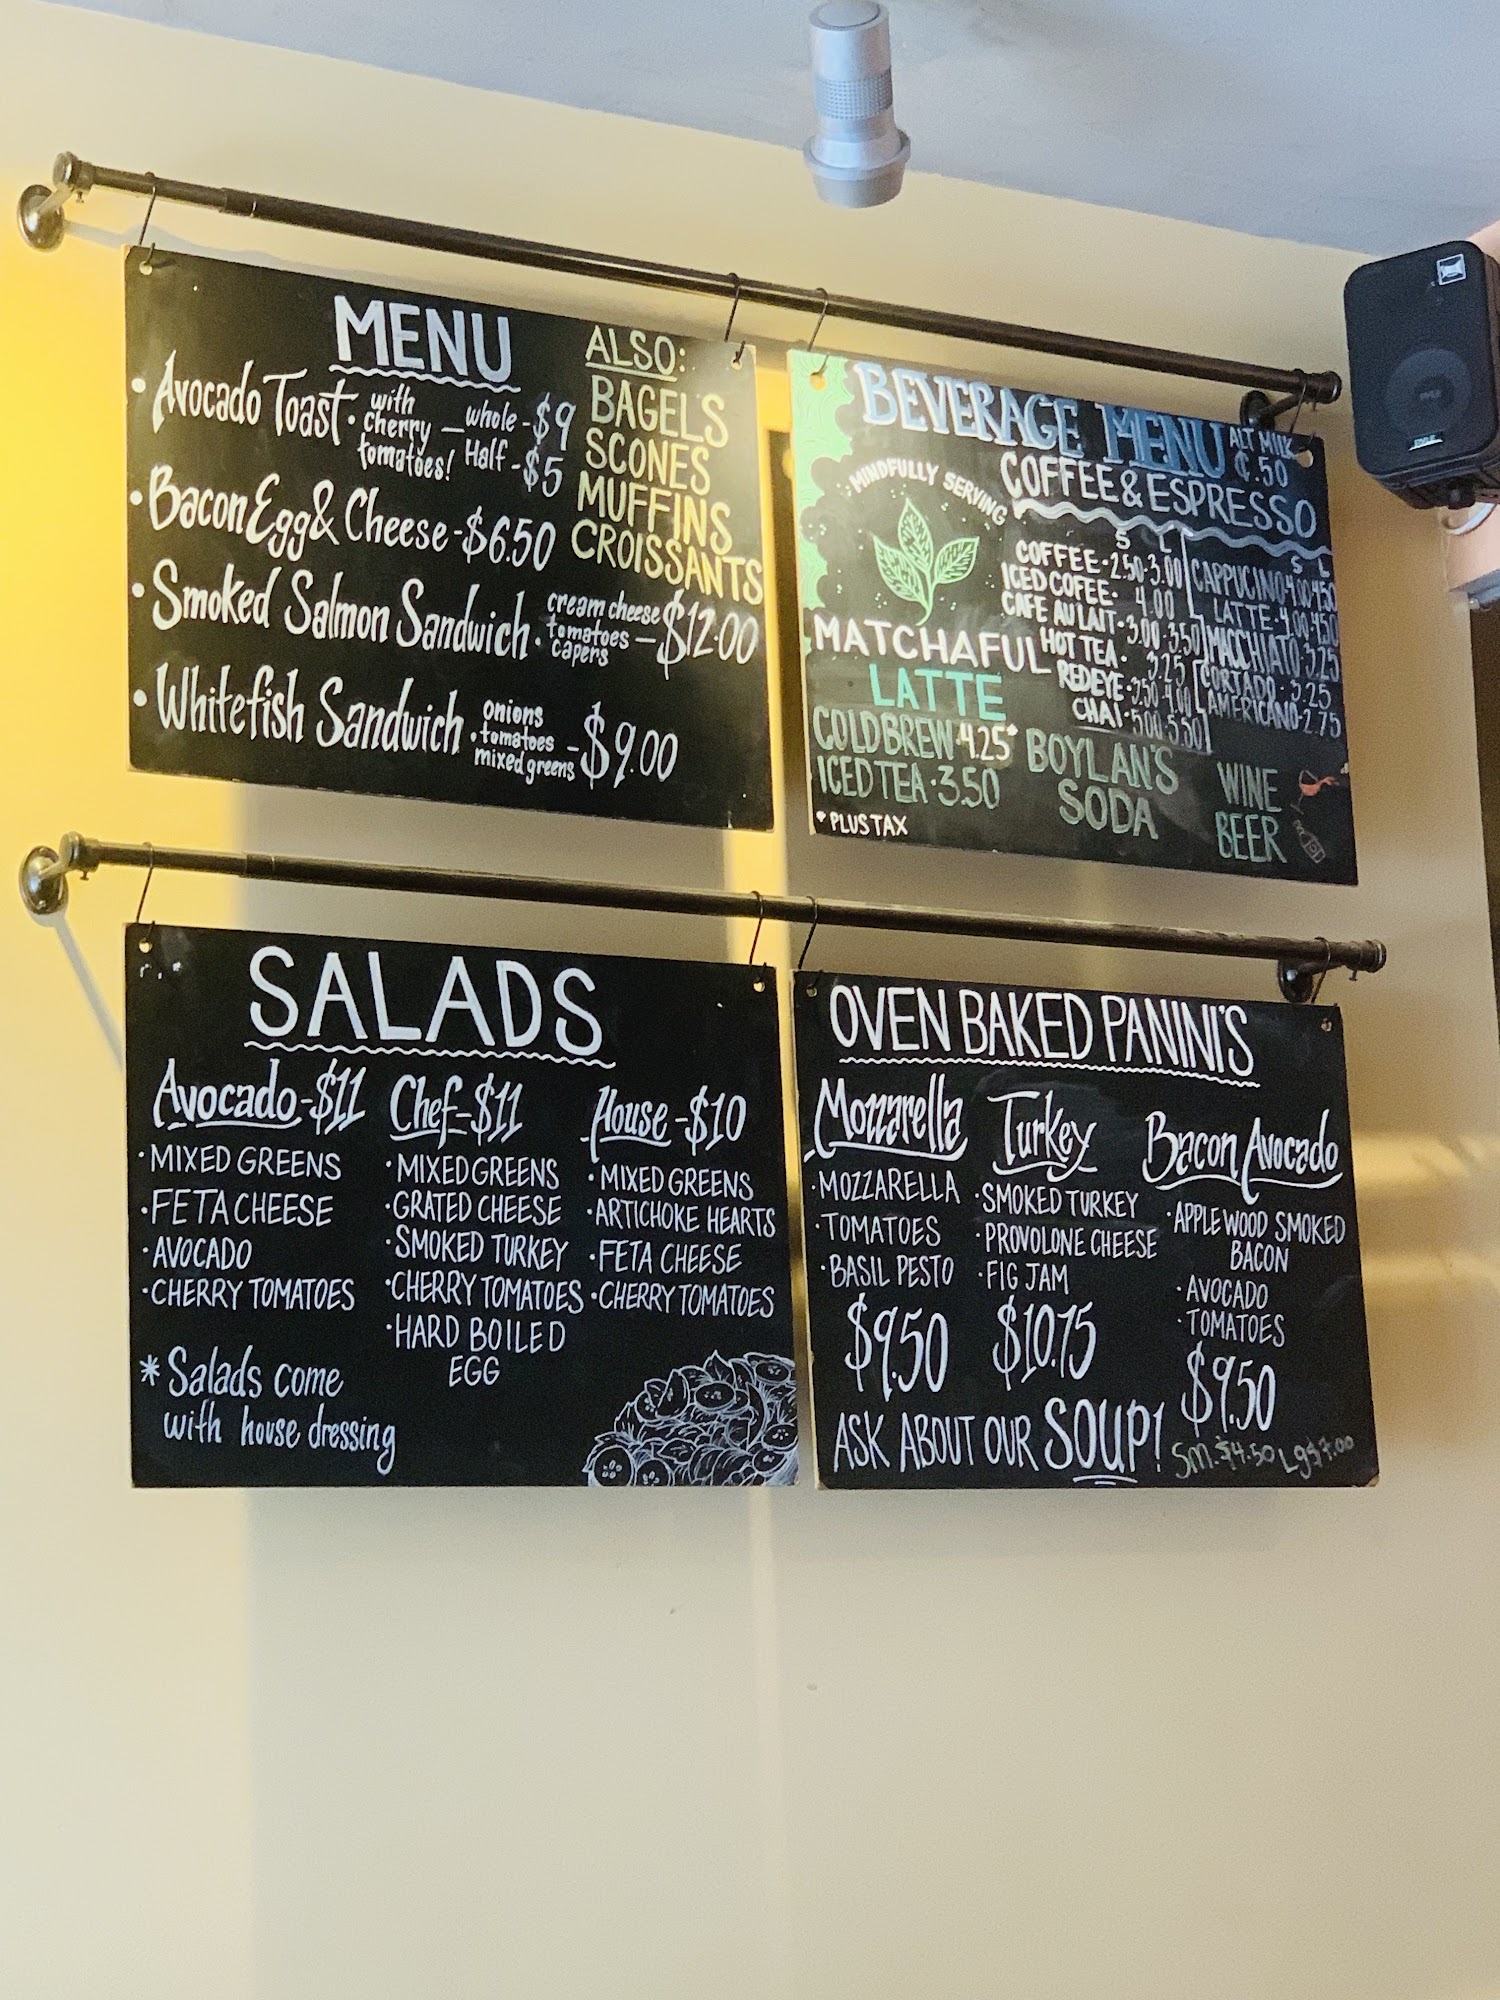 MENU
• Avocado Toast • with cherry tomatoes! — whole - $9
Half - $5
• Bacon Egg & Cheese - $6.50
• Smoked Salmon Sandwich • cream cheese tomatoes capers — $12.00
• Whitefish Sandwich • onions tomatoes mixed greens - $9.00
ALSO:
BAGELS
SCONES
MUFFINS
CROISSANTS
BEVERAGE MENU
ALT MILK
¢.50
MINDFULLY SERVING
MATCHAFUL
LATTE
COLD BREW • 4.25*
ICED TEA • 3.50
* PLUS TAX
COFFEE & ESPRESSO
S L
COFFEE • 2.50 - 3.00
ICED COFEE • 4.00
CAFE AU LAIT • 3.00 - 3.50
HOT TEA • 3.25
REDEYE • 3.50 - 4.00
CHAI • 5.00 - 5.50
S L
CAPPUCINO 4.00 4.50
LATTE • 4.00 4.50
MACCHIATO • 3.25
CORTADO • 3.25
AMERICANO - 2.75
BOYLAN'S
SODA
WINE
BEER
SALADS
Avocado - $11
• MIXED GREENS
• FETA CHEESE
• AVOCADO
• CHERRY TOMATOES
Chef - $11
• MIXED GREENS
• GRATED CHEESE
• SMOKED TURKEY
• CHERRY TOMATOES
• HARD BOILED
EGG
House - $10
• MIXED GREENS
• ARTICHOKE HEARTS
• FETA CHEESE
• CHERRY TOMATOES
* Salads come
with house dressing
OVEN BAKED PANINI'S
Mozzarella
• MOZZARELLA
• TOMATOES
• BASIL PESTO
$9.50
Turkey
• SMOKED TURKEY
• PROVOLONE CHEESE
• FIG JAM
$10.75
Bacon Avocado
• APPLEWOOD SMOKED
BACON
• AVOCADO
• TOMATOES
$9.50
ASK ABOUT OUR SOUP!
Sm. $4.50 Lg $7.00